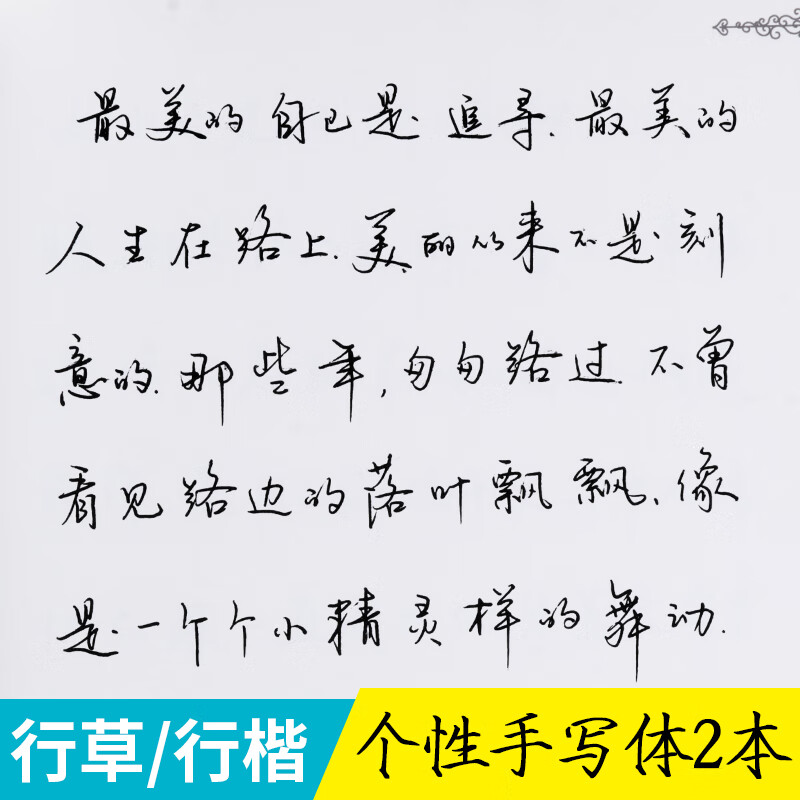 最美的自己是追寻.最美的
人生在路上.美的从来不是刻
意的.那些年,匆匆路过.不曾
看见路边的落叶飘飘、像
是一个个小精灵样的舞动.
行草/行楷
个性手写体2本